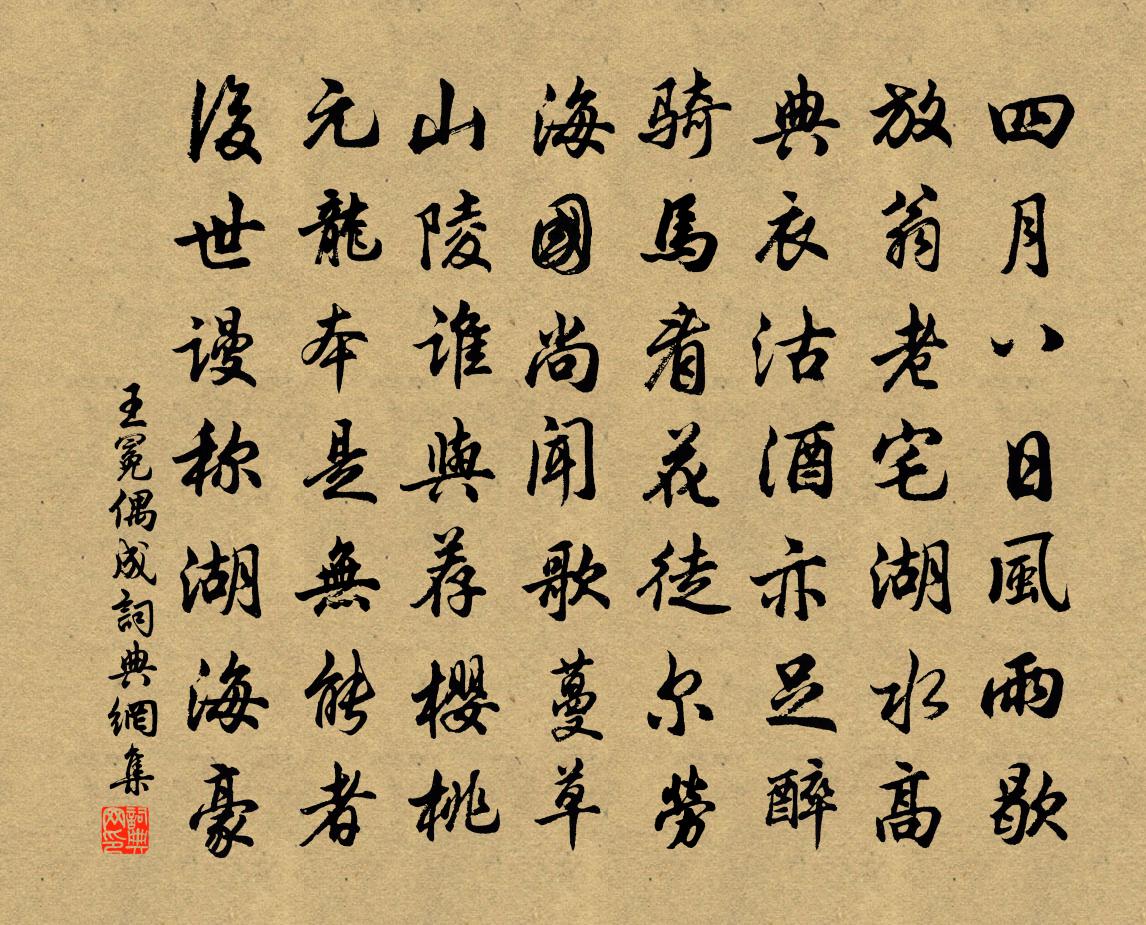 四月八日風雨歇
放翁老宅湖水高
典衣沽酒亦足醉
騎馬看花徒尔勞
海國尚聞歌蔓草
山陵誰與荐櫻桃
元龍本是無能者
後世謾称湖海豪
王冕偶成詞典網集
詞典网印